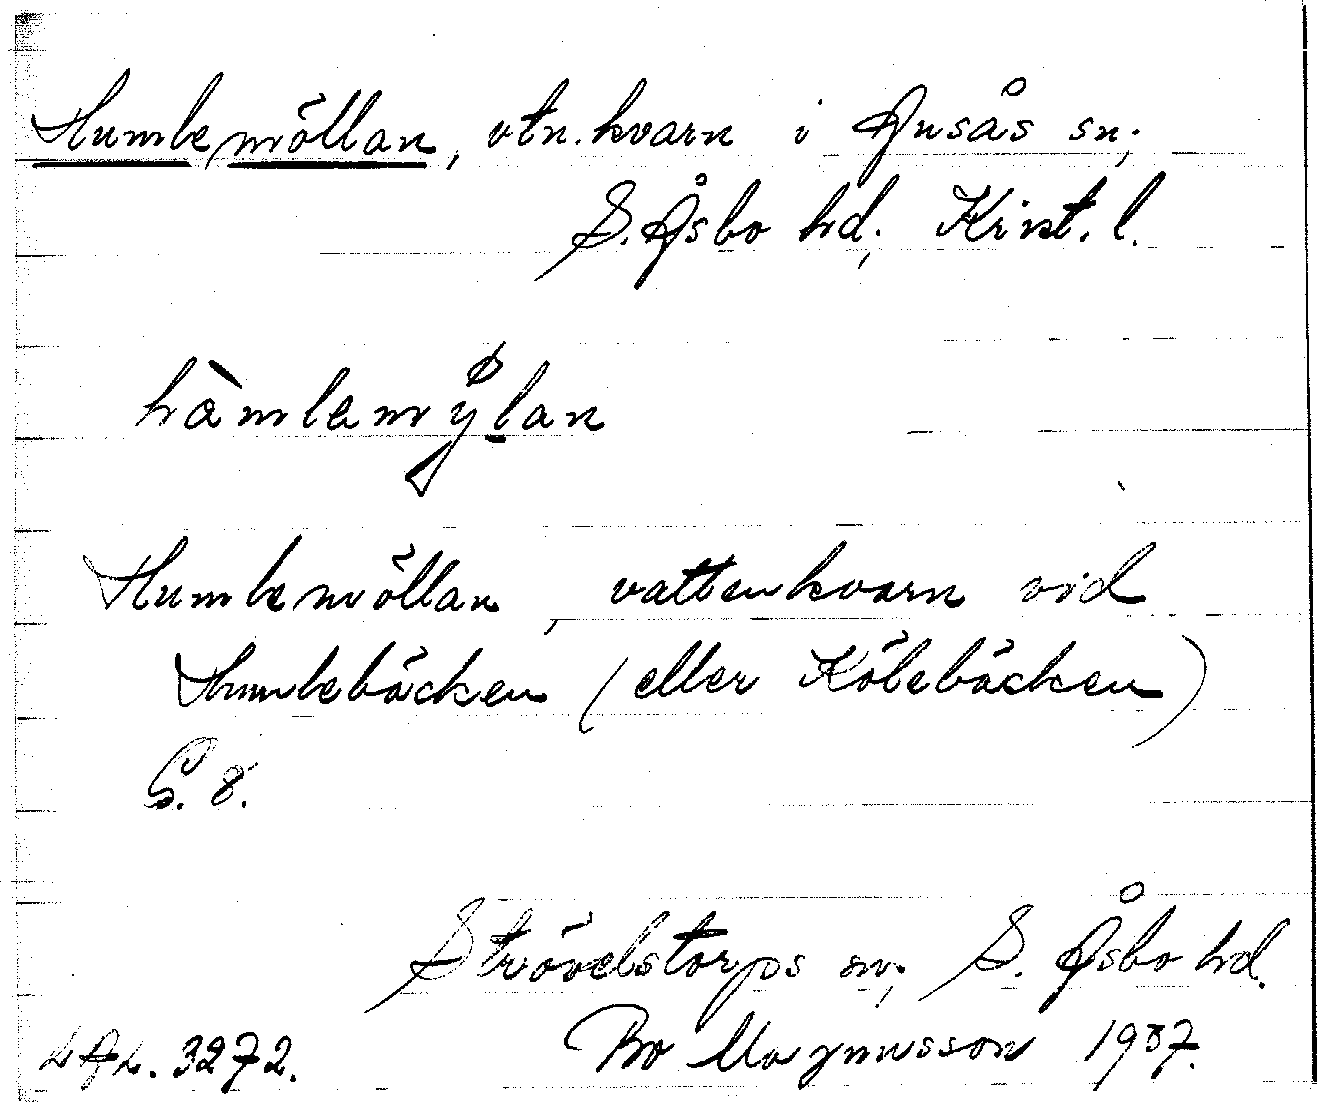 Humlemöllan, vtn.kvarn i Ausås sn;
S. Åsbo hd; Krist. l.
hàmlemølan
Humlemöllan, vattenkvarn vid
Humlebäcken (eller Kölebäcken)
G. 8.
Strövelstorps sn; S. Åsbo hd.
LAL. 3272. Bo Magnusson 1937.